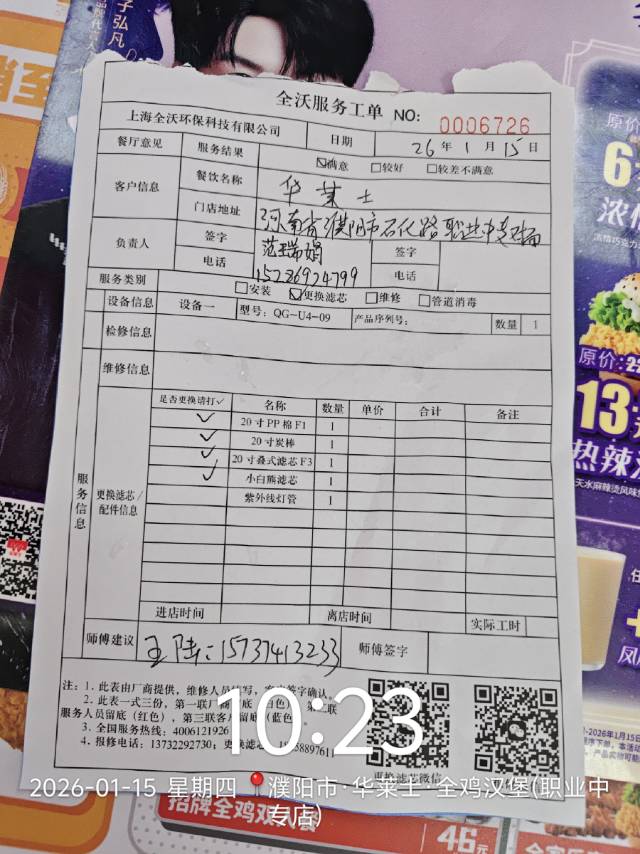 子弘凡
品牌代言人
全沃服务工单 NO: 0006726
上海全沃环保科技有限公司 日期 26 年 1 月 15 日
餐厅意见 服务结果 ☑满意 □较好 □较差不满意
客户信息 餐饮名称 华莱士
门店地址 河南省濮阳市石化路职业中专对面
负责人 签字 范瑞娟 签字
电话 15286924799 电话
服务类别 □安装 ☑更换滤芯 □维修 □管道消毒
设备信息 设备一 型号: QG-U4-09 产品序列号: 数量 1
检修信息
维修信息
服务信息
更换滤芯/配件信息
是否更换请打✓ 名称 数量 单价 合计 备注
✓ 20寸PP棉F1 1
✓ 20寸炭棒 1
✓ 20寸叠式滤芯F3 1
✓ 小白熊滤芯 1
紫外线灯管 1
进店时间 离店时间 实际工时
师傅建议 王陆:15737413233 师傅签字
注:1.此表由厂商提供,维修人员填写,客户签字确认。
2.此表一式三份,第一联厂
服务人员留底(红色),第三联客户留底(蓝色)
3.全国服务热线:4006121926
4.报修电话:13732292730;更换滤
更换滤芯微信
10:23
2026-01-15 星期四 濮阳市·华莱士·全鸡汉堡(职业中
专店)
原价
6
浓
原价:
13
热辣
天水麻辣烫风味
招牌全鸡双人套
46元